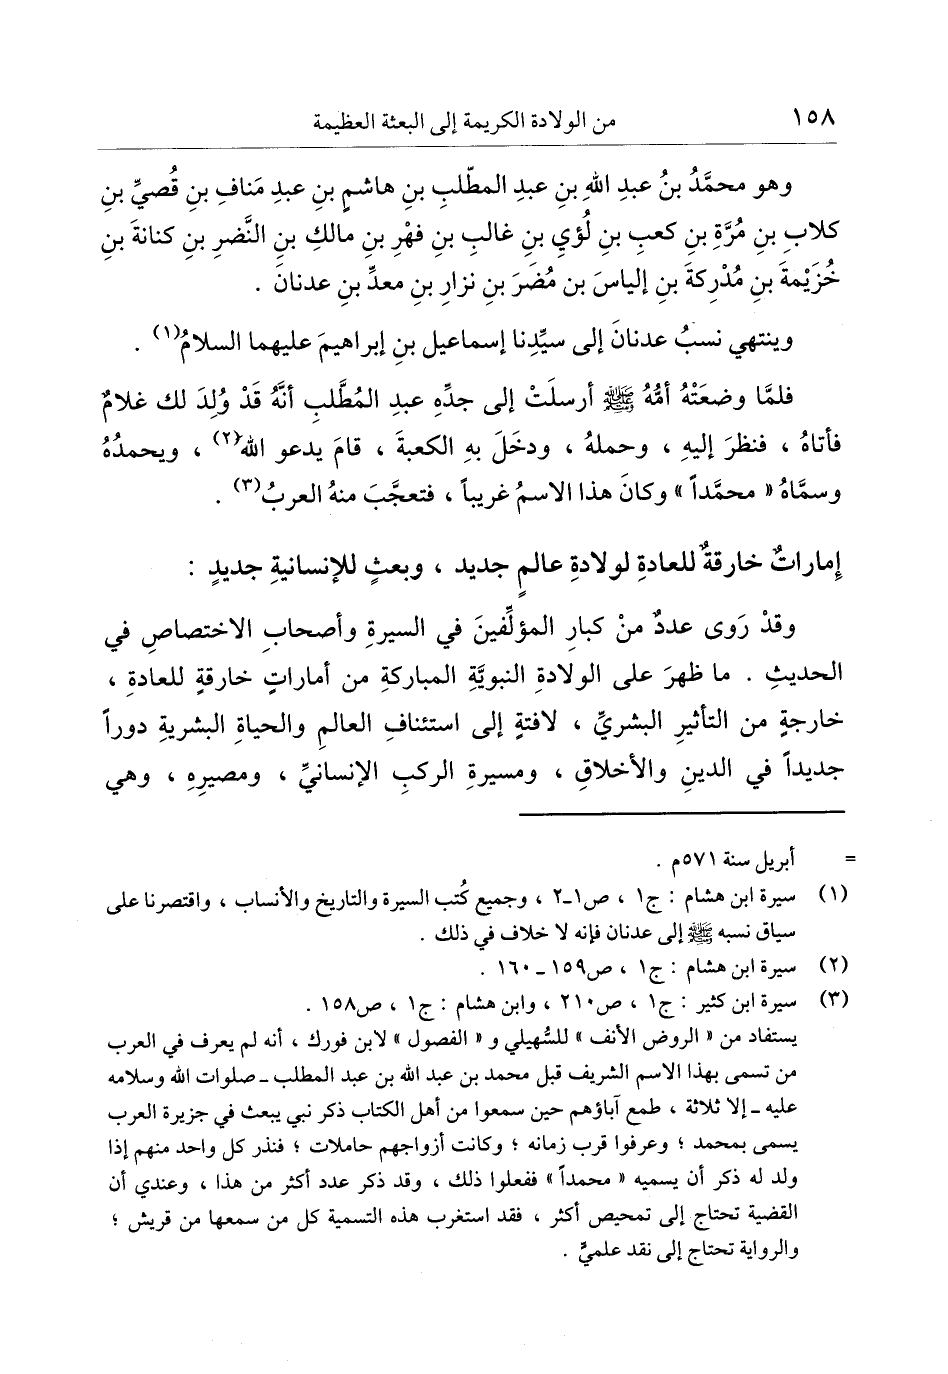 ١٥٨ من الولادة الكريمة إلى البعثة العظيمة
وهو محمَّدُ بنُ عبدِ اللهِ بنِ عبدِ المطّلبِ بنِ هاشمِ بنِ عبدِ مَنافِ بنِ قُصيِّ بنِ
كلابِ بنِ مُرَّةِ بنِ كعبِ بنِ لُؤيِ بنِ غالبِ بنِ فهْرِ بنِ مالكِ بنِ النَّضرِ بنِ كنانةَ بنِ
خُزَيْمةَ بنِ مُدْركةَ بنِ إلياسَ بن مُضَرَ بنِ نزارِ بنِ معدِّ بنِ عدنانَ .
وينتهي نسبُ عدنانَ إلى سيِّدِنا إسماعيل بنِ إبراهيمَ عليهما السلامُ(١) .
فلمَّا وضعَتْهُ أمُّهُ ﷺ أرسلَتْ إلى جدِّه عبدِ المُطَّلبِ أنَّهُ قَدْ وُلِدَ لك غلامٌ
فأتاهُ ، فنظرَ إليهِ ، وحملهُ ، ودخَلَ بهِ الكعبةَ ، قامَ يدعو اللهَ(٢) ، ويحمدُهُ
وسمَّاهُ « محمَّداً » وكانَ هذا الاسمُ غريباً ، فتعجَّبَ منهُ العربُ(٣) .
إماراتٌ خارقةٌ للعادةِ لولادةِ عالمٍ جديد ، وبعثٍ للإنسانيةِ جديدٍ :
وقدْ رَوى عددٌ منْ كبارِ المؤلِّفينَ في السيرةِ وأصحابِ الاختصاصِ في
الحديثِ . ما ظهرَ على الولادةِ النبويَّةِ المباركةِ من أماراتٍ خارقةٍ للعادةِ ،
خارجةٍ من التأثيرِ البشريِّ ، لافتةٍ إلى استئنافِ العالمِ والحياةِ البشريةِ دوراً
جديداً في الدينِ والأخلاقِ ، ومسيرةِ الركبِ الإنسانيِّ ، ومصيرِهِ ، وهي
= أبريل سنة ٥٧١م .
(١) سيرة ابن هشام : ج١ ، ص١ـ٢ ، وجميع كُتب السيرة والتاريخ والأنساب ، واقتصرنا على
سياق نسبه ﷺ إلى عدنان فإنه لا خلاف في ذلك .
(٢) سيرة ابن هشام : ج١ ، ص١٥٩ـ١٦٠ .
(٣) سيرة ابن كثير : ج١ ، ص٢١٠ ، وابن هشام : ج١ ، ص١٥٨ .
يستفاد من « الروض الأنف » للسُّهيلي و « الفصول » لابن فورك ، أنه لم يعرف في العرب
من تسمى بهذا الاسم الشريف قبل محمد بن عبد الله بن عبد المطلب ـ صلوات الله وسلامه
عليه ـ إلا ثلاثة ، طمع آباؤهم حين سمعوا من أهل الكتاب ذكر نبي يبعث في جزيرة العرب
يسمى بمحمد ؛ وعرفوا قرب زمانه ؛ وكانت أزواجهم حاملات ؛ فنذر كل واحد منهم إذا
ولد له ذكر أن يسميه « محمداً » ففعلوا ذلك ، وقد ذكر عدد أكثر من هذا ، وعندي أن
القضية تحتاج إلى تمحيص أكثر ، فقد استغرب هذه التسمية كل من سمعها من قريش ؛
والرواية تحتاج إلى نقد علميٍّ .